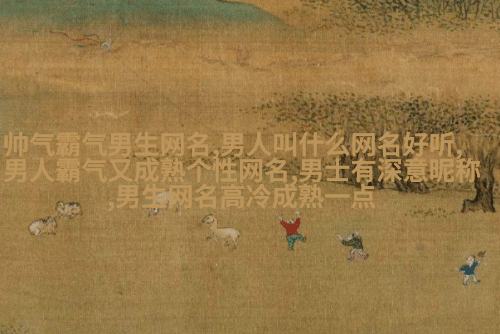 帅气霸气男生网名,男人叫什么网名好听,
男人霸气又成熟个性网名,男士有深意昵称
,男生网名高冷成熟一点